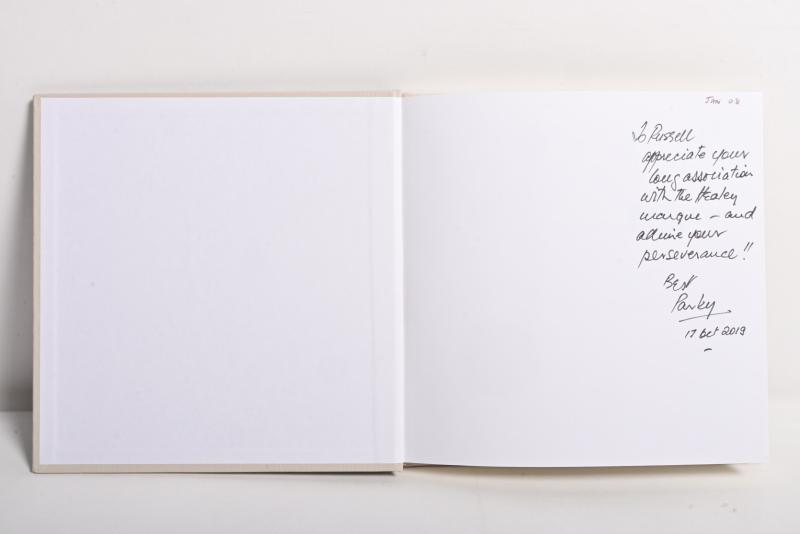 JAN 08
To Russell
appreciate your
long association
with the Healey
marque – and
admire your
perseverance!!
Best
Parky
17 Oct 2019